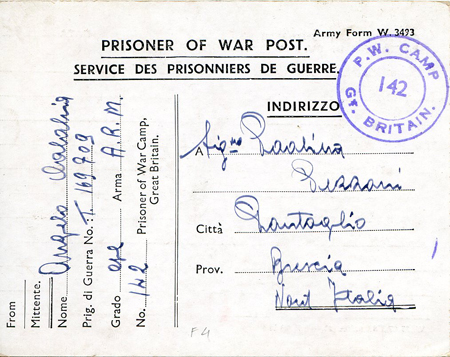 Army Form W. 3493
PRISONER OF WAR POST.
SERVICE DES PRISONNIERS DE GUERRE.
P.W. CAMP
142
GT. BRITAIN.
INDIRIZZO
A
Città
Prov. Brescia
Nord Italia
From
Mittente.
Nome Angelo
Prig. di Guerra No.: T. 169709
Grado Arma A.R.M.
No. 142 Prisoner of War Camp,
Great Britain.
F4